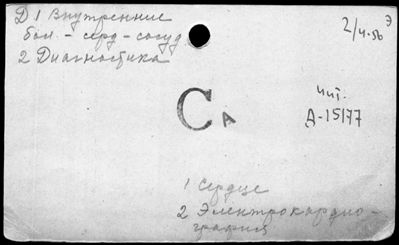 Д 1 Внутренние
бол. - серд - сосуд
2 Диагностика
2/4-56 Э
Са
чит.
Д-15177
1 Сердце
2 Электрокардио-
графия